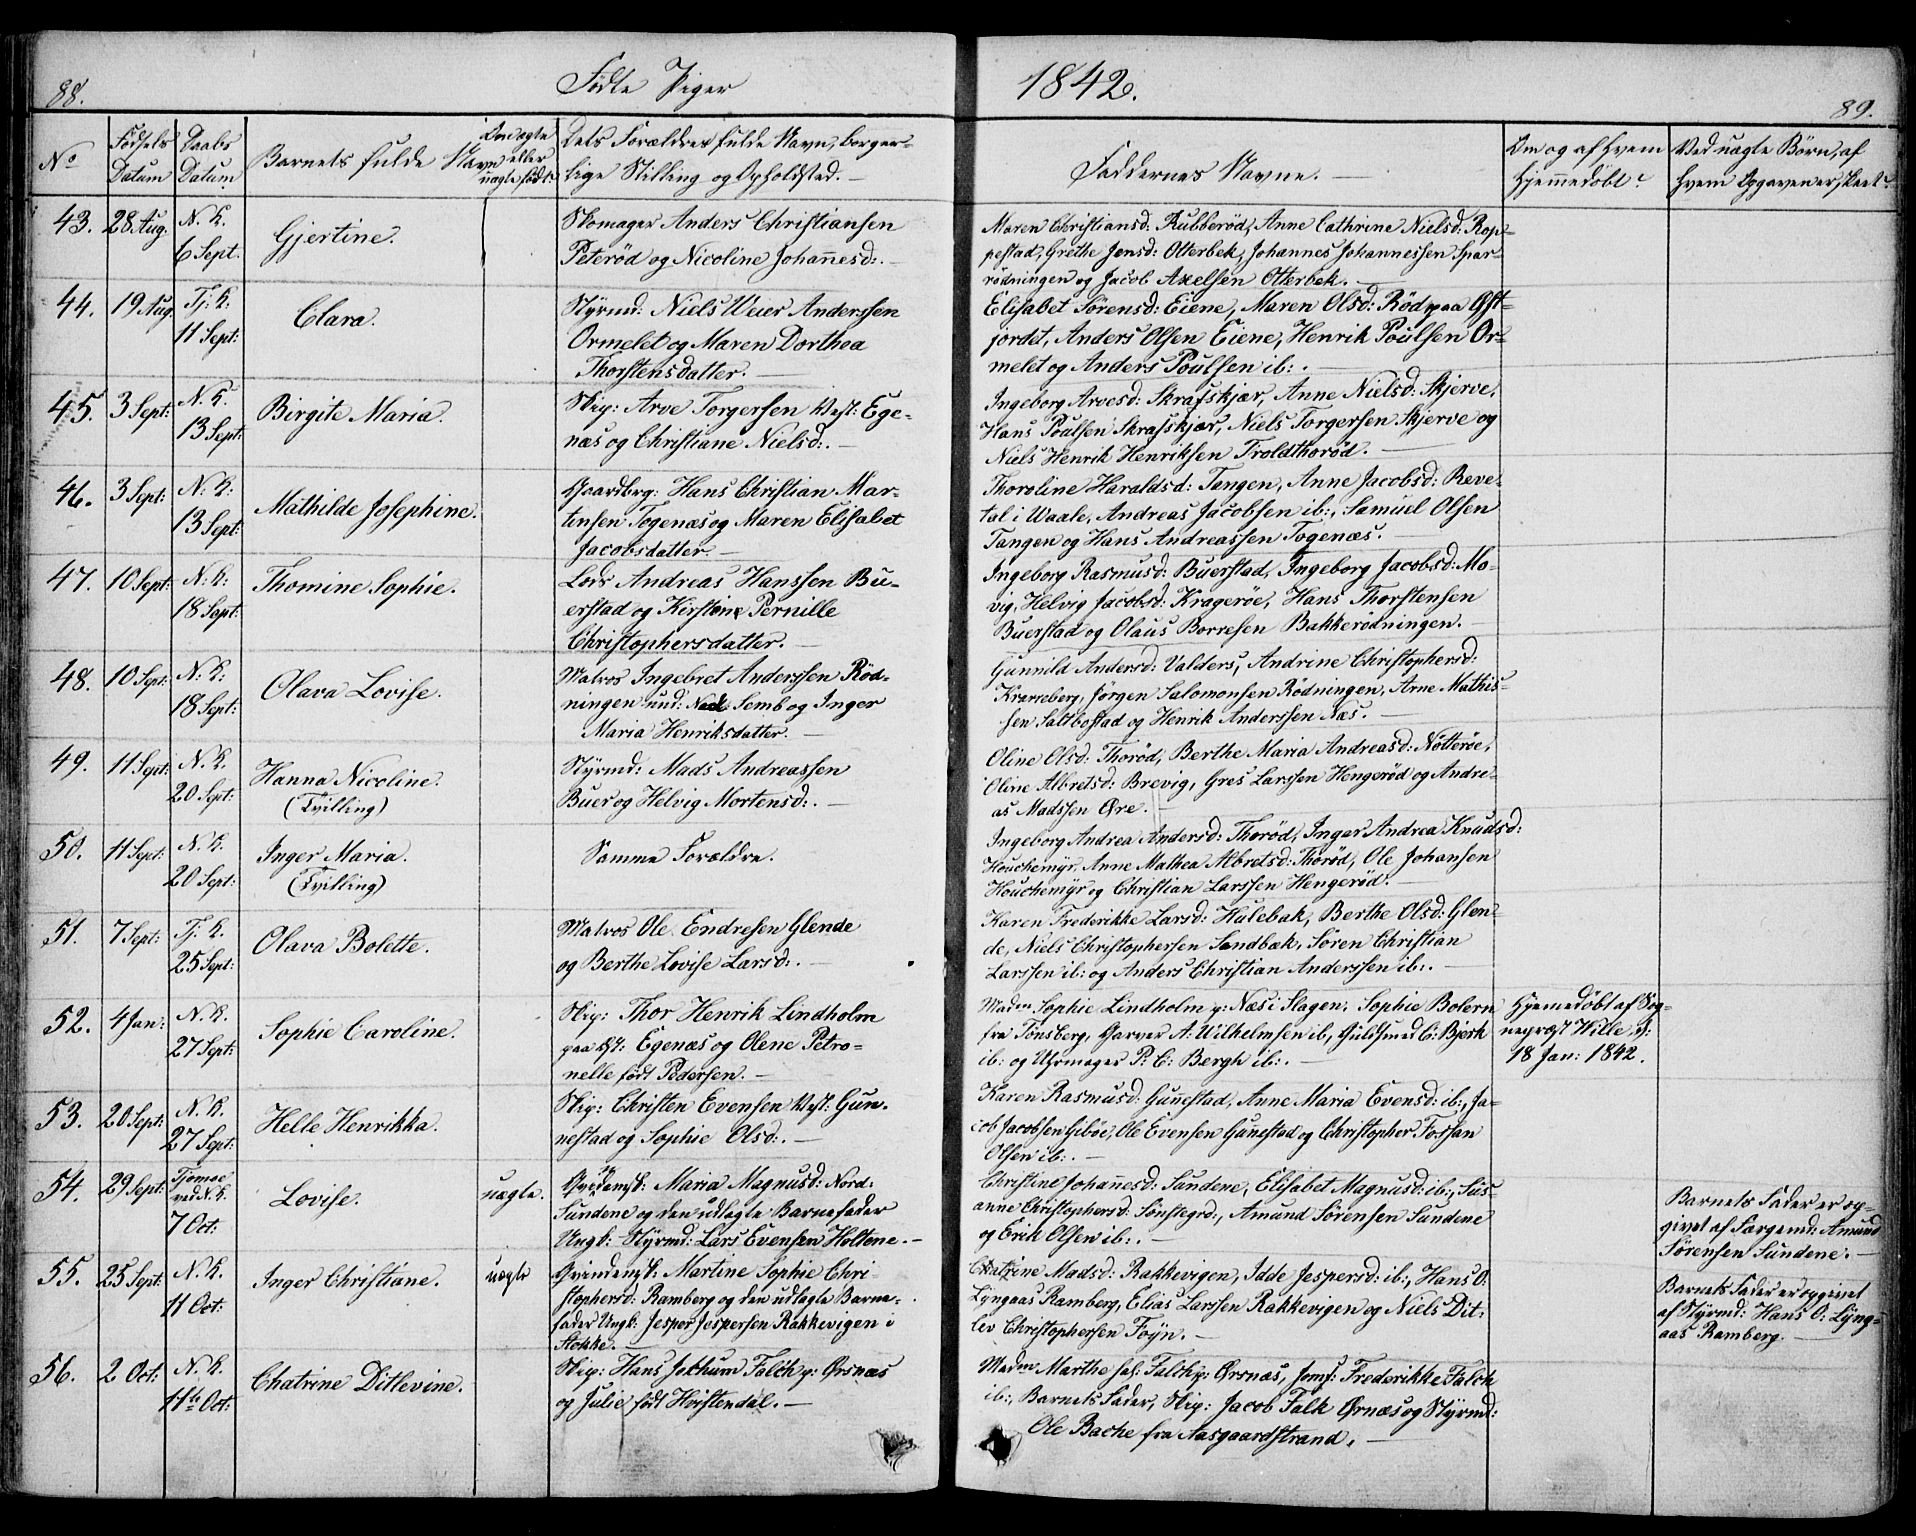 88.
Fødte Piger
1842.
89.
No
Fødsels Datum
Daabs Datum
Barnets fulde Navn
Om ægte eller uægte født.
Dets Forældres fulde Navn, borger-
lige Stilling og Opholdsted. —
Faddernes Navne. —
Om og af hvem
hjemmedøbt.
Ved uægte Børn, af
hvem Opgaven er skeet.
43. 28 Aug. N. K. 6 Sept. Gjertine.
Skomager Anders Christiansen
Peterød og Nicoline Johannesd:. —
Maren Christiansd: Rubberød, Anne Cathrine Nielsd: Rop-
pestad, Grethe Jensd: Otterbek, Johannes Johannessen Spar-
rødningen og Jacob Axelsen Otterbek. —
44. 19 Aug. Tj: K: 11 Sept: Clara.
Styrmd: Niels Weier Anderssen
Ormelet og Maren Dorthea
Thorstensdatter. —
Elisabet Sørensd: Eiene, Maren Olsd: Rød paa Øst-
jordet, Anders Olsen Eiene, Henrik Poulsen Or-
melet og Anders Poulsen ib:. —
45. 3 Sept: N. K. 13 Sept: Birgite Maria.
Skip: Arve Torgersen Vest: Ege-
næs og Christiane Nielsd:. —
Ingeborg Arvesd: Skrafskjær, Anne Nielsd: Skjerve,
Hans Poulsen Skrafskjær, Niels Torgersen Skjerve og
Niels Henrik Henriksen Troldthorød. —
46. 3 Sept: N: K: 13 Sept: Mathilde Josephine.
Gaardbrg: Hans Christian Mar-
tinsen Togenæs og Maren Elisabet
Jacobsdatter. —
Thoroline Haraldsd: Tangen, Anne Jacobsd: Reve-
tal i Waale, Andreas Jacobsen ib:, Samuel Olsen
Tangen og Hans Andreassen Togenæs.
47. 10 Sept: N: K: 18 Sept: Thomine Sophie.
Lods Andreas Hanssen Bu-
erstad og Kirstine Pernille
Christophersdatter. —
Ingeborg Rasmusd: Buerstad, Ingeborg Jacobsd: Mo-
vig, Helvig Jacobsd: Kragerøe, Hans Thorstensen
Buerstad og Olaus Borresen Bakkerødningen. —
48. 10 Sept: N: K: 18 Sept: Olava Lovise.
Matros Ingebret Anderssen Rød-
ningen und: Nedr Semb og Inger
Maria Henriksdatter. —
Gunnild Andersd: Valders, Andrine Christophersd:
Krarreberg, Jørgen Salomonsen Rødningen, Arne Mathis-
sen Saltbostad og Henrik Anderssen Næs. —
49. 11 Sept: N. K. 20 Sept: Hanna Nicoline.
(Tvilling)
Styrmd: Mads Andreassen
Buer og Helvig Mortensd:. —
Oline Olsd: Thorød, Berthe Maria Andreasd: Nøtterøe,
Olene Albretsd: Brevig, Gres Larssen Hengerød og Andre-
as Madssen Øre. —
50. 11 Sept: N. K. 20 Sept: Inger Maria.
(Tvilling)
Samme Forældre.
Ingeborg Andrea Andersd: Thorød, Inger Andrea Knudsd:
Houchemyr, Anne Mathea Albretsd: Thorød, Ole Johansen
Houchemyr og Christian Larssen Hengerød. —
51. 7 Sept: Tj. K. 25 Sept: Olava Bolette.
Matros Ole Endresen Glende
og Berthe Lovise Larsd:. —
Karen Frederikke Larsd: Hulebak, Berthe Olsd: Glen-
de, Niels Christophersen Sandbæk, Søren Christian
Larssen ib: og Anders Christian Anderssen ib:. —
52. 4 Jan: N. K. 27 Sept: Sophie Caroline.
Skip: Thor Henrik Lindholm
paa Øst: Egenæs og Olene Petro-
nelle født Pedersen. —
Madm Sophie Lindholm p: Næs i Slagen, Sophie Bolern
fra Tønsberg, Garver A: Wilhelmsen ib, Guldsmed C: Bjerk
ib: og Uhrmager P: C: Bergh ib:. —
Hjemmedøbt af Sog-
neprest Wille, d:
18 Jan: 1842.
53. 20 Sept: N. K. 27 Sept: Helle Henrikka.
Skip: Christen Evensen Vest: Gun-
nestad og Sophie Olsd:. —
Karen Rasmusd: Gunnestad, Anne Maria Evensd: ib:, Ja-
cob Jacobsen Gibøe, Ole Evensen Gunestad og Christopher Fossan
Olsen ib:. —
54. 29 Sept: Tjømøe ved N. K. 7 Oct: Lovise.
uægte.
Qvindemsk: Maria Magnusd: Nord:
Sundene og den udlagte Barnefader
Ungk: Styrmd: Lars Evensen Holtene. —
Christine Johannesd: Sundene, Elisabet Magnusd: ib:, Sus-
anne Christophersd: Sønstegrd:, Amund Sørensen Sundene
og Erik Olsen ib:. —
Barnets Fader er op-
givet af Sørgemd: Amund
Sørensen Sundene. —
55. 25 Sept: N. K. 11 Oct: Inger Christiane.
uægte
Qvindemsk: Martine Sophie Chri-
stophersd: Ramberg og den udlagte Barne-
fader Ungk: Jesper Jespersen Rakkevigen i
Stokke. —
Chatrine Madsd: Rakkevigen, Idde Jespersd: ib:, Hans O:
Lyngaas Ramberg, Elias Larssen Rakkevigen og Niels Dit-
lev Christophersen Foyn. —
Barnets Fader er opgivet
af Styrmd: Hans O: Lyng-
aas Ramberg. —
56. 2 Oct: N. K. 11te Oct: Chatrine Ditlevine.
Skip: Hans Jokhum Falch p: Ørsnæs
og Julie født Hvistendal. —
Madm Marthe sal: Falch p: Ørsnæs, Jomf: Frederikke Falch
ib:, Barnets Fader, Skip: Jacob Falk Ørnæs og Styrmd:
Ole Bache fra Aasgaardstrand. —